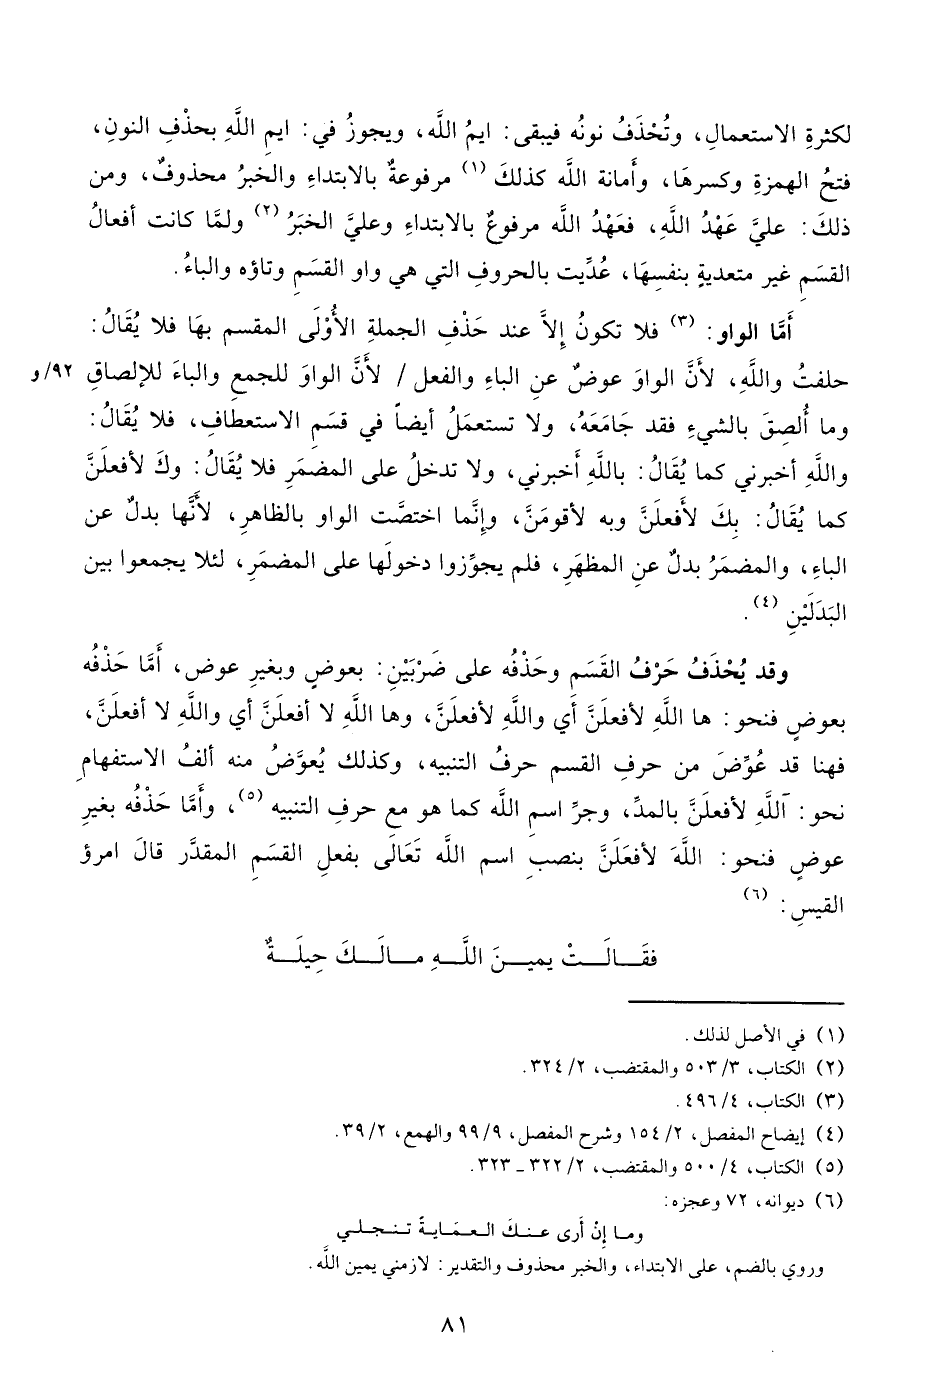 لكثرةِ الاستعمالِ، وتُحْذَفُ نونُه فيبقى: ايمُ اللَّه، ويجوزُ في: ايمِ اللَّهِ بحذْفِ النونِ،
فتحُ الهمزةِ وكسرهَا، وأَمانة اللَّه كذلكَ (١) مرفوعةٌ بالابتداءِ والخبرُ محذوفٌ، ومن
ذلكَ: عليَّ عَهْدُ اللَّهِ، فعَهْدُ اللَّه مرفوعٌ بالابتداءِ وعليَّ الخبَرُ (٢) ولمَّا كانت أفعالُ
القسَمِ غير متعديةٍ بنفسِهَا، عُدِّيت بالحروفِ التي هي واو القسَمِ وتاؤه والباءُ.
أَمَّا الواو: (٣) فلا تكونُ إِلاَّ عند حَذْفِ الجملةِ الأُوْلَى المقسم بهَا فلا يُقَالُ:
حلفتُ واللَّهِ، لأَنَّ الواوَ عوضٌ عنِ الباءِ والفعل / لأَنَّ الواوَ للجمعِ والباءَ للإلصاقِ ٩٢/و
وما أُلصِقَ بالشيءِ فقد جَامَعَهُ، ولا تستعمَلُ أيضاً في قسَمِ الاستعطافِ، فلا يُقَالُ:
واللَّهِ أخبرني كما يُقَالُ: باللَّهِ أَخبرني، ولا تدخلُ على المضمَرِ فلا يُقَالُ: وكَ لأفعلَنَّ
كما يُقَالُ: بِكَ لأَفعلَنَّ وبه لأقومَنَّ، وإِنَّما اختصَّت الواو بالظاهرِ، لأَنَّها بدلٌ عن
الباءِ، والمضمَرُ بدلٌ عنِ المظهَرِ، فلم يجوِّزوا دخولَها على المضمَرِ، لئلا يجمعوا بين
البَدَلَيْنِ (٤).
وقد يُحْذَفُ حَرْفُ القَسَمِ وحَذْفُه على ضَرْبَيْنِ: بعوضٍ وبغيرِ عوض، أَمَّا حَذْفُه
بعوضٍ فنحو: ها اللَّهِ لأفعلَنَّ أَي واللَّهِ لأفعلَنَّ، وها اللَّهِ لا أفعلَنَّ أي واللَّهِ لا أفعلَنَّ،
فهنا قد عُوِّضَ من حرفِ القسم حرفُ التنبيه، وكذلك يُعوَّضُ منه ألفُ الاستفهامِ
نحو: آللَّهِ لأفعلَنَّ بالمدِّ، وجرِّ اسمِ اللَّه كما هو مع حرفِ التنبيه (٥)، وأَمَّا حَذْفُه بغيرِ
عوضٍ فنحو: اللَّهَ لأفعَلَنَّ بنصبِ اسم اللَّه تَعَالَى بفعلِ القسَمِ المقدَّر قالَ امرؤ
القيسِ: (٦)
فقَـالَـتْ يميـنَ اللَّـهِ مـالَـكَ حِيلَـةٌ
(١) في الأصل لذلك.
(٢) الكتاب، ٥٠٣/٣ والمقتضب، ٣٢٤/٢.
(٣) الكتاب، ٤٩٦/٤.
(٤) إيضاح المفصل، ١٥٤/٢ وشرح المفصل، ٩٩/٩ والهمع، ٣٩/٢.
(٥) الكتاب، ٥٠٠/٤ والمقتضب، ٣٢٢/٢ ـ ٣٢٣.
(٦) ديوانه، ٧٢ وعجزه:
ومـا إِنْ أَرى عنـكَ العمَـايـةَ تنجلـي
وروي بالضم، على الابتداء، والخبر محذوف والتقدير: لازمني يمين اللَّه.
٨١